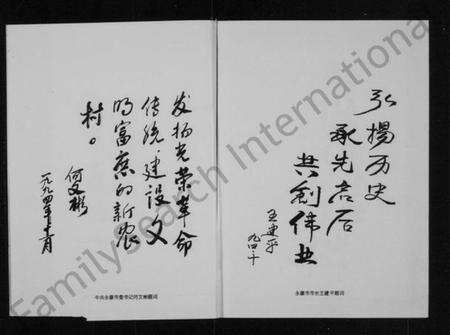 弘揚历史
承先启后
共创伟业
王建平
九四、十
永康市市长王建平题词
发扬光荣革命
传统，建设文
明富庶的新农
村。
何文彬
一九九四年十一月
中共永康市委书记何文彬题词
FamilySearch International